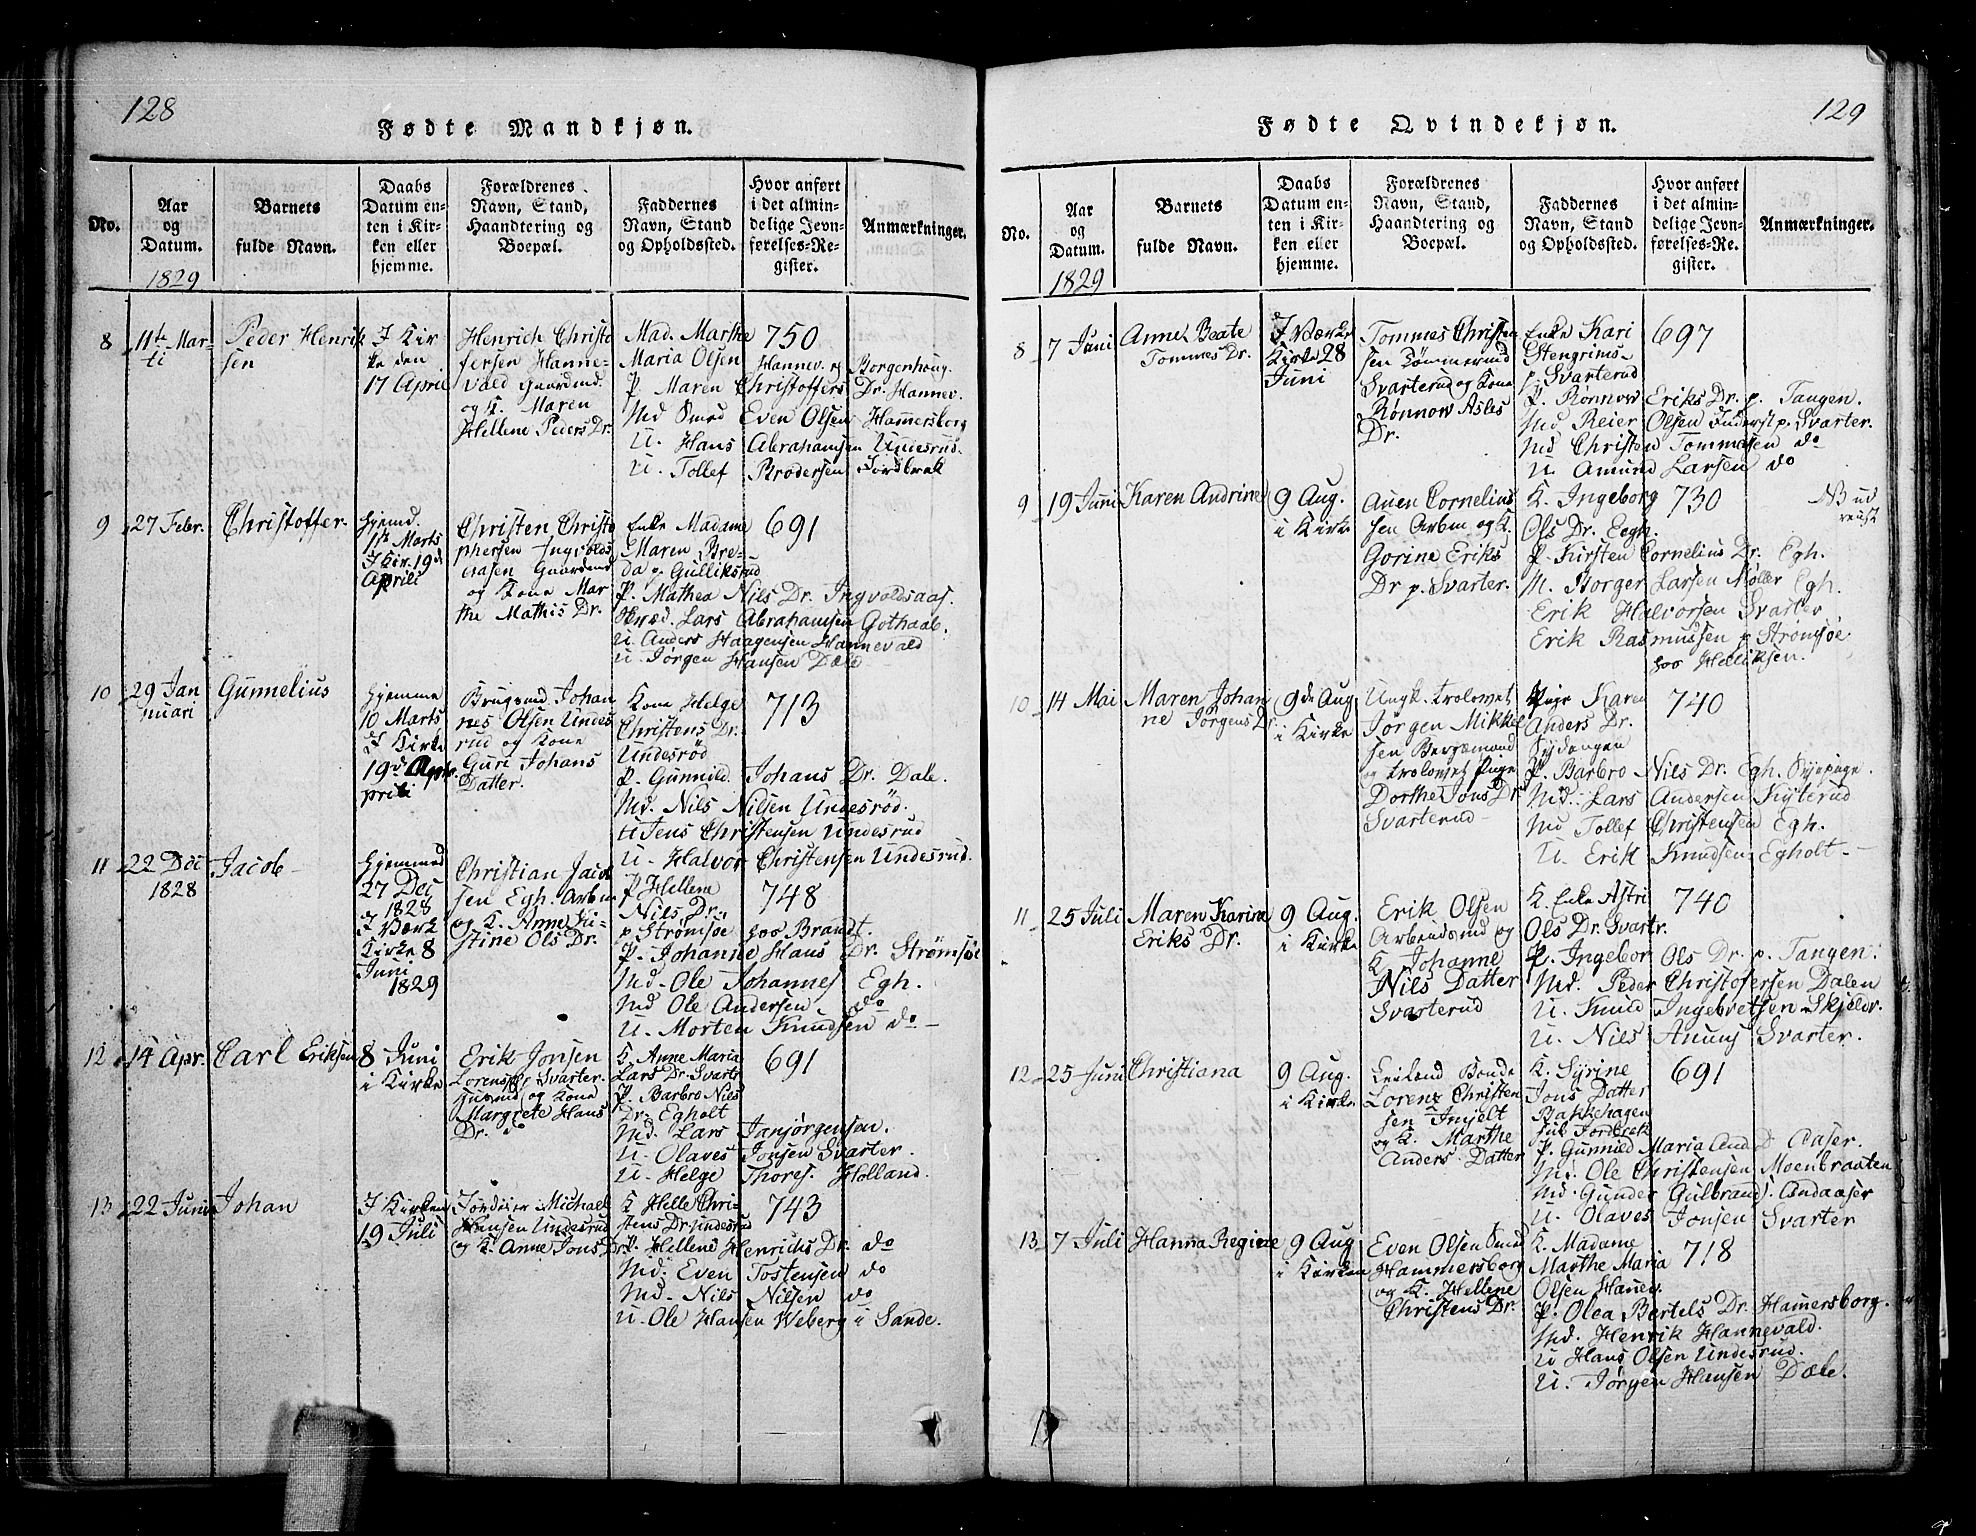 128
Fødte Mandkjøn.
No.
Aar og Datum.
Barnets fulde Navn.
Daabs Datum enten i Kirken eller hjemme.
Forældrenes Navn, Stand, Haandtering og Boepæl.
Faddernes Navn, Stand og Opholdssted.
Hvor anført i det almindelige Jevnførelses-Register.
Anmærkninger.
1829
8
11te Mar-
ti
Peder Henrik
sen
I Kir
ke den
17 April
Henrich Christo
fersen Hanne-
vald Gaardmd.
og K. Maren
Hellene Peders Dr.
Mad. Marthe
Maria Olsen Hannev. og Borgenhoug.
P. Maren Christoffers Dr. Hannev.
Md Smed Even Olsen Hammersborg
U. Hans Abrahamsen Undesrud.
U. Tollef Brodersen Jordbræk
750
9
27 Febr.
Christoffer.
hjemd.
1ste Marts
I Kir. 19de
Aprili
Christen Christo
phersen Ingvolds
Gaardmd
og Kone Mar
the Mathis Dr.
Enke Madame
Maren Bre-
da p. Gulliksrud
P. Mathea Nils Dr. Ingvoldsaas.
Skræd. Lars Abrahamsen Gothaab.
U. Anders Haagensen Hannevald
U. Jørgen Hansen Dæle
691
10
29 Jan
nuari
Gunnelius
hjemme
10 Marts
I Kirke
19de Apr.
prili
Brugsmd Johan
nes Olsen Undes
rud og Kone
Guri Johans
Datter.
Kone Helge
Christens Dr.
Undesrød
P. Gunnild Johans Dr. Dale.
Md. Nils Nilsen Undesrød.
U Jens Christensen Undesrud
U. Halvor Christensen Undesrud.
713
11
22 Dec
1828
Jacob
hjemmed
27 Dec
1828
I Værk
Kirke 8
Juni
1829
Christian Jacob
sen Egh. Arbm
og K. Anne Ki-
stine Ols Dr.
P Hellene
Nils Dr.
p. Strømsøe hoo Brandt.
P. Johanne Hans Dr. Strømsøe
Md. Ole Johannes Egh.
Md Ole Andersen do
U. Morten Knudsen do
748
12
14 Apr.
Carl Eriksen
8 Juni
i Kirke
Erik Jonsen
Svarter.
Husmd og Kone
Margrete Hans
Dr. do
K. Anne Maria
Lars Dr. Svartr
P. Barbro Nils
Dr. Egholt
Md. Lars Janjørgensen.
U. Olaves Jonsen Svarter.
U. Helge Thores. Holland.
691
13
22 Juni
Johan
I Kirken
19 Juli
Jordeier Michael
Hansen Undesrud
og K. Anne Jons Dr
K Helle Chri-
stens Dr. Undesrud
P. Hellene Henrichs Dr. do
Md. Even Tostensen do
Md. Nils Nilsen do
U. Ole Hansen Weberg i Sande.
743
129
Fødte Qvindekjøn.
No.
Aar og Datum.
Barnets fulde Navn.
Daabs Datum enten i Kirken eller hjemme.
Forældrenes Navn, Stand, Haandtering og Boepæl.
Faddernes Navn, Stand og Opholdssted.
Hvor anført i det almindelige Jevnførelses-Register.
Anmærkninger.
1829
8
7 Juni
Anne Beate
Tommes Dr.
I Værks
Kirke 28
Juni
Tommes Christen
sen Tømmermd
Svarterud og Kone
Rønnow Asles
Dr.
Enke Kari
Stengrims-
p. Svarterud
P. Rønnow Eriks Dr. p. Tangen.
Md Reier Olsen Inderst p. Svarter.
Md Christen Tommesen do
U. Amund Larsen do
697
9
19 Juni
Karen Andrine
9 Aug.
i Kirke
Auen Cornelius
sen Arbm og K.
Gorine Eriks
Dr p. Svarter.
K. Ingeborg
Ols Dr. Eegh.
P. Kirsten Cornelius Dr. Egh.
M. Borger Larsen Møller Egh.
Erik Halvorsen Svarter
Erik Rasmussen p. Strømsøe
hoo Helliksen.
730
NB ud
reist
10
14 Mai
Maren Johan
ne Jørgens Dr.
9de Aug
i Kirke
Ungk. trolovet
Jørgen Mikkel
sen Bergsmand
og trolovet Pige
Dorthe Jons Dr
Svarterud
Pige Karen
Anders Dr.
P. Barbro Nils Dr. Egh. Sypige.
Md. Lars Andersen Kyterud
Md Tollef Christensen Egh.
U. Erik Knudsen Egholt
740
11
25 Juli
Maren Karine
Eriks Dr.
9 Aug.
i Kirke
Erik Olsen
Arbeidsmd og
K. Johanne
Nils Datter
Svarterud
K. Enke Astri
Ols Dr. Svartr.
P. Ingebor Ols Dr. p. Tangen.
Md. Peder Christofersen Dalen
U. Knud Ingebretsen Skjeldr.
U. Nils Svarter.
740
12
25 Juni
Christiana
9 Aug.
i Kirke
Leilend Bonde
Lorenz Christen
sen
og K. Marthe
Anders Datter
K. Syrine
Jons Datter
Bakkehagen
Jordbræk
P. Gunnild Maria And D Aaser.
Md. Ole Christensen Moenbraaten
Md. Gunder Gulbrands. Andaaser
U. Olaves Jonsen Svarter
691
13
7 Juli
Hanna Regine
9 Aug
i Kirken
Even Olsen Smed
Hammersborg
og K. Hellene
Christens Dr.
K. Madame
Marthe Maria
Olsen Hanev.
P. Olea Bertels Dr. Hamersborg.
Md. Henrik Hannevald.
U Hans Olsen Undesrud.
U. Jørgen Hansen Dæle.
718